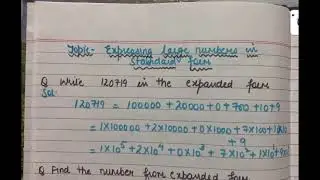 Topic- Expressing large numbers in
Standard form
Q Write 120719 in the expanded form
Sol:
120719 = 100000 + 20000 + 0 + 700 + 10 + 9
= 1×100000 + 2×10000 + 0×1000 + 7×100 + 1×10
+ 9
= 1×10⁵ + 2×10⁴ + 0×10³ + 7×10² + 1×10¹ +
Q Find the number from expanded form